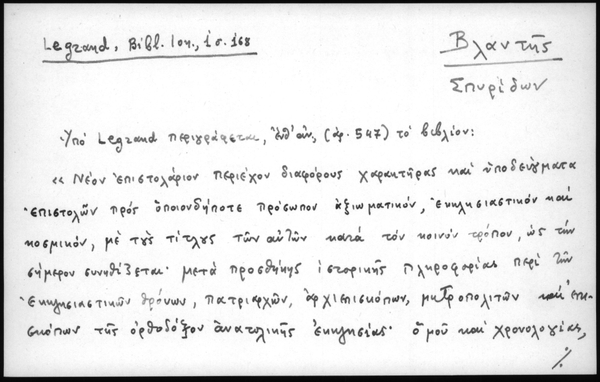 Legrand, Bibl. Ion., 1 σ. 168
Βλαντῆς
Σπυρίδων
Ὑπό Legrand περιγράφεται, ἔνθ' ἀν, (ἀρ. 547) τό βιβλίον:
«Νέον ἐπιστολάριον περιέχον διαφόρους χαρακτῆρας καί ὑποδείγματα
ἐπιστολῶν πρός ὁποιονδήποτε πρόσωπον ἀξιωματικόν, ἐκκλησιαστικόν καί
κοσμικόν, μέ τους τίτλους τῶν αὐτῶν κατά τόν κοινόν τρόπον, ὡς τήν
σήμερον συνηθίζεται· μετά προσθήκης ἱστορικῆς πληροφορίας περί τῶν
ἐκκλησιαστικῶν θρόνων, πατριαρχῶν, ἀρχιεπισκόπων, μητροπολιτῶν καί ἐπι-
σκόπων τῆς ὀρθοδόξου ἀνατολικῆς ἐκκλησίας· ὁμοῦ καί χρονολογίας,
./.